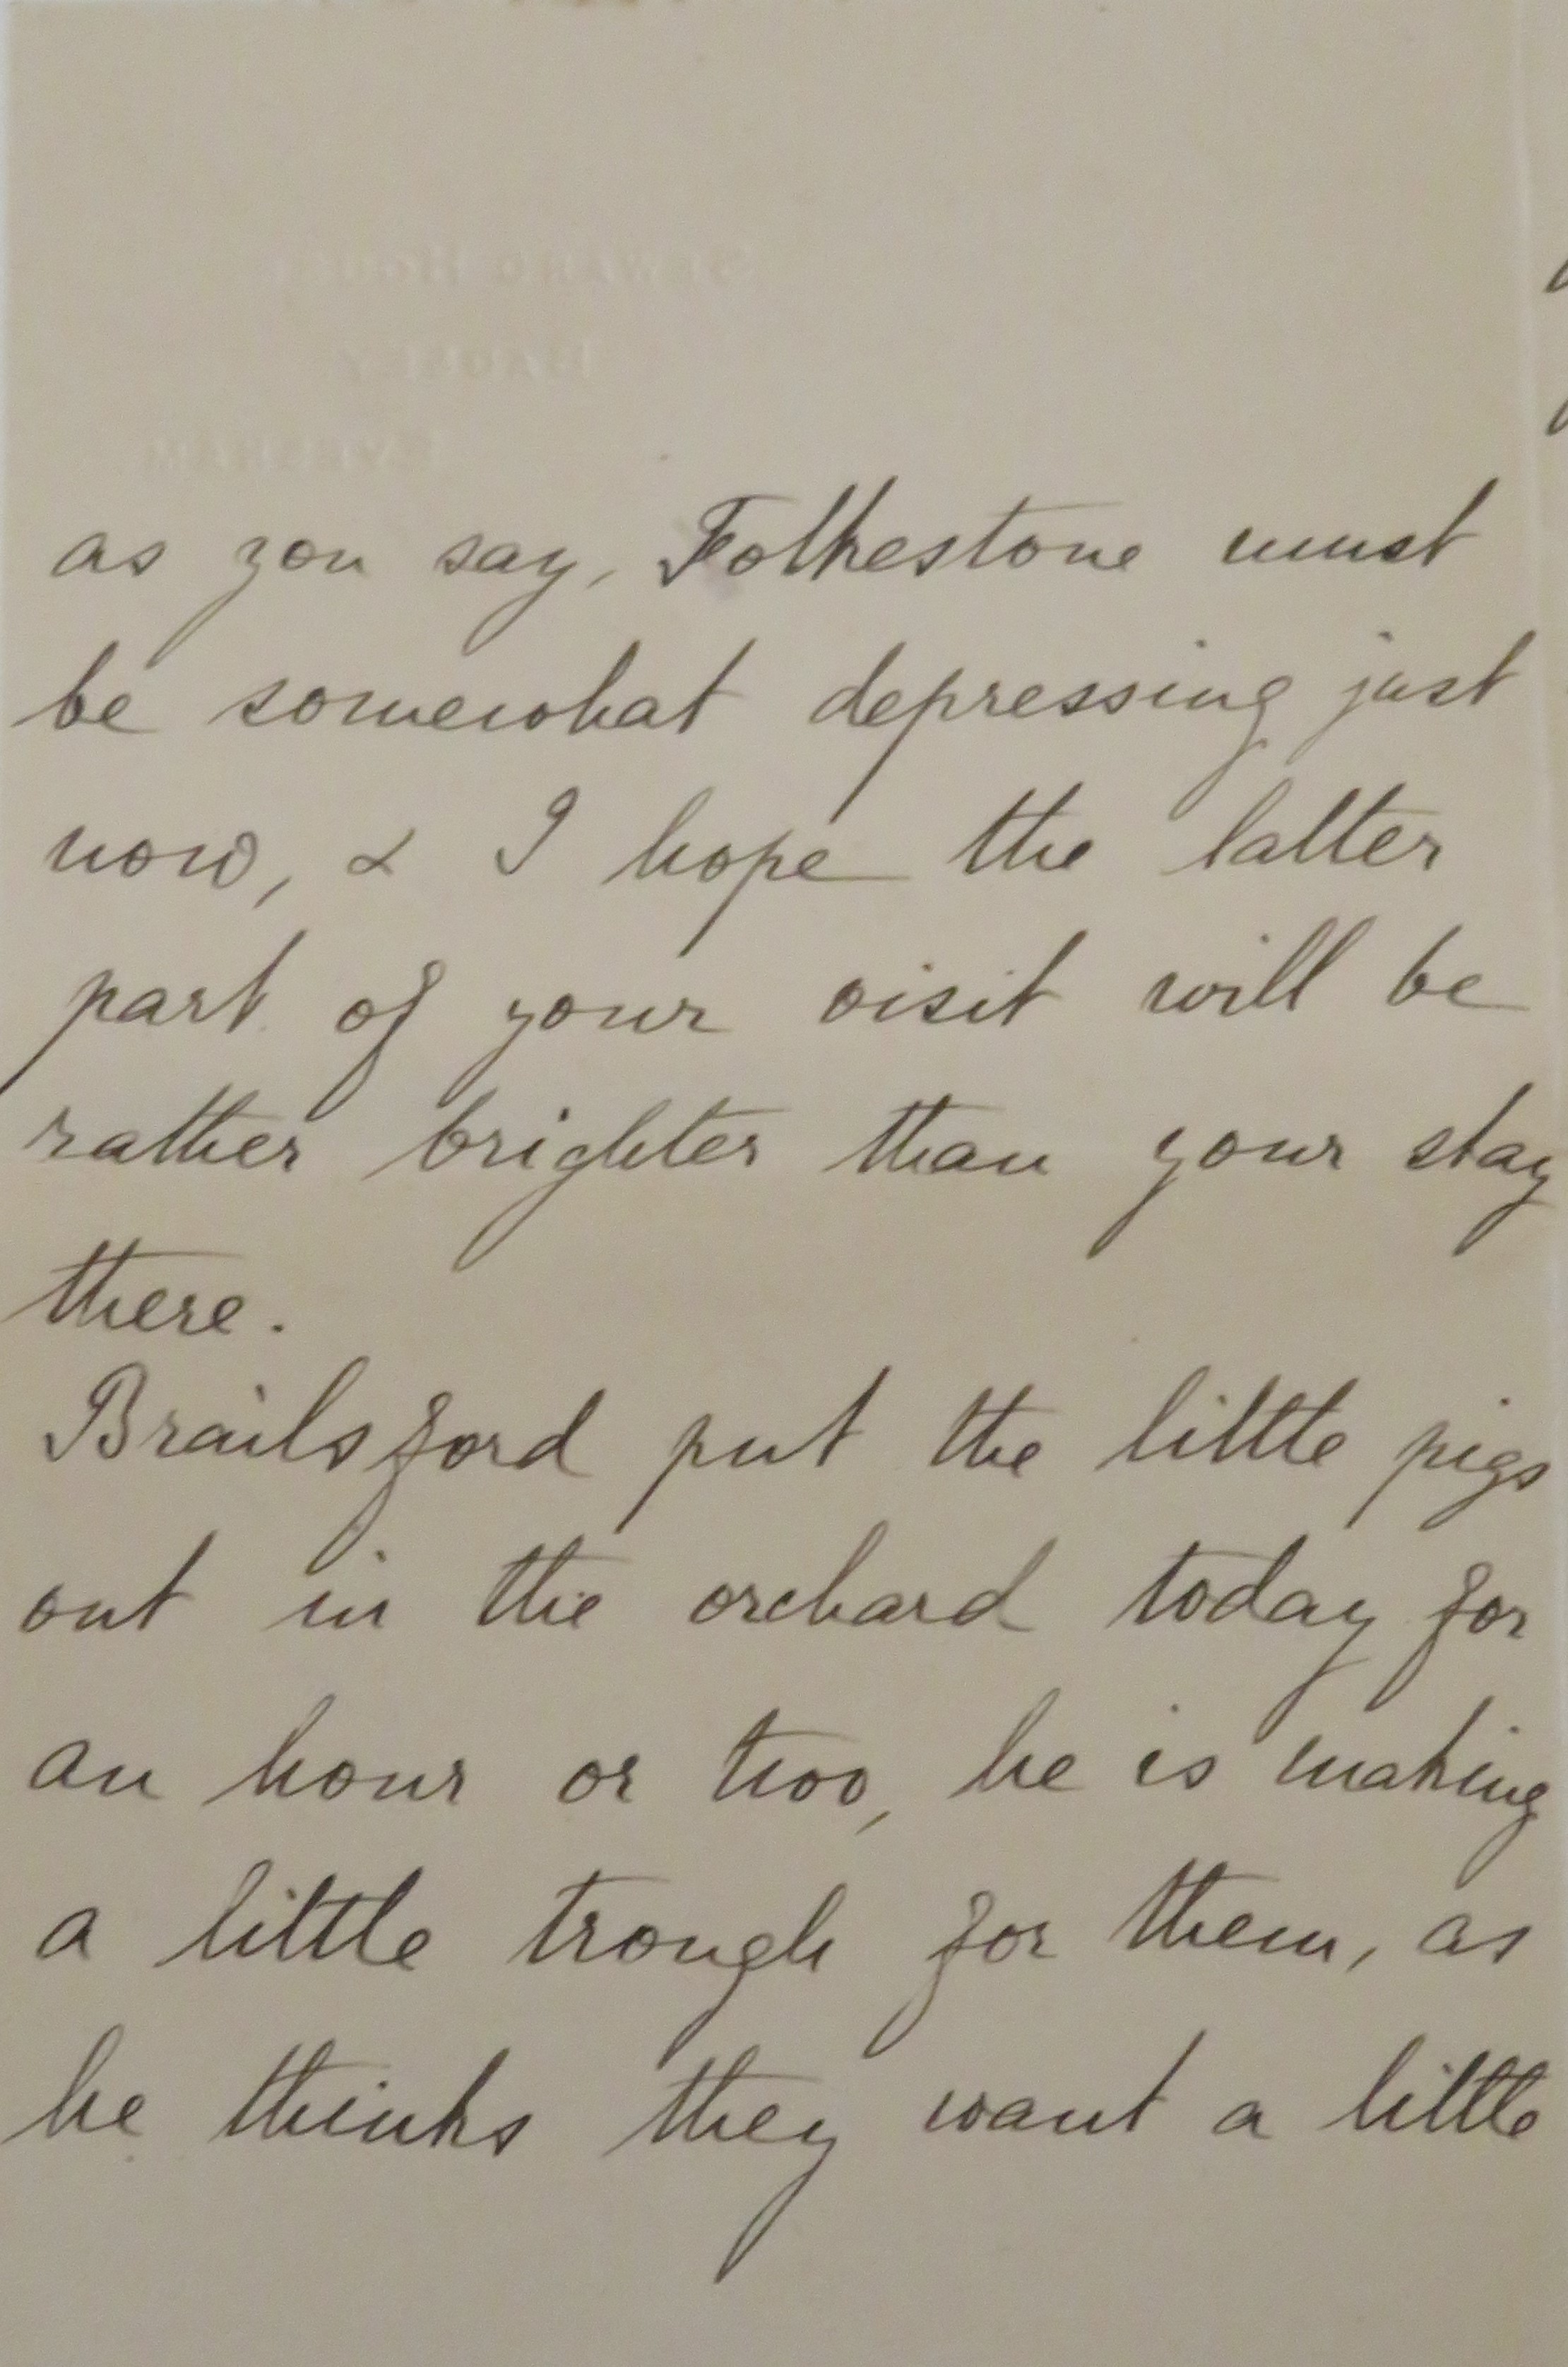 as you say, Folkestone must
be somewhat depressing just
now, & I hope the latter
part of your visit will be
rather brighter than your stay
there.
Brailsford put the little pigs
out in the orchard today for
an hour or two, he is making
a little trough for them, as
he thinks they want a little